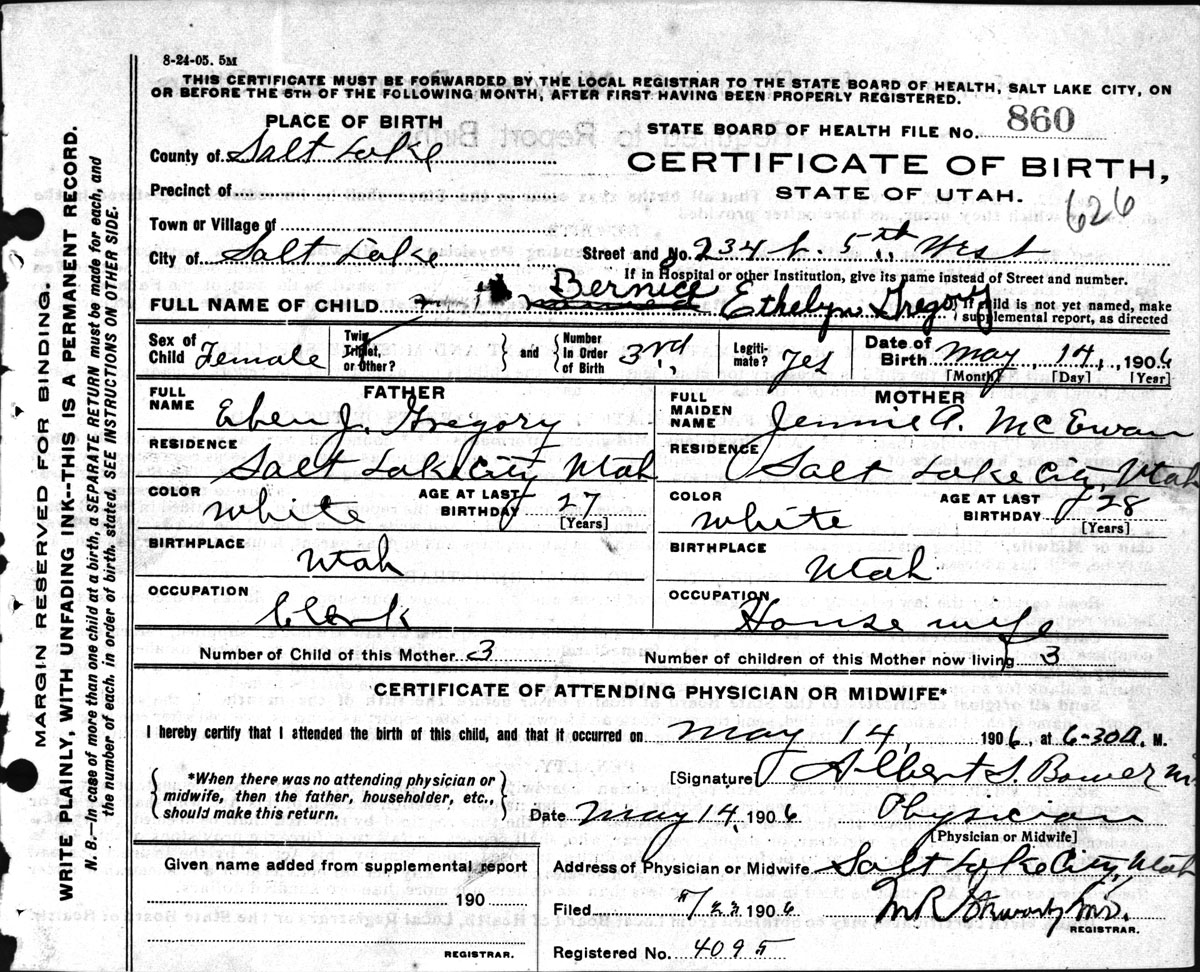 8-24-05. 5M
THIS CERTIFICATE MUST BE FORWARDED BY THE LOCAL REGISTRAR TO THE STATE BOARD OF HEALTH, SALT LAKE CITY, ON
OR BEFORE THE 5TH OF THE FOLLOWING MONTH, AFTER FIRST HAVING BEEN PROPERLY REGISTERED.
PLACE OF BIRTH
STATE BOARD OF HEALTH FILE No. 860
County of Salt Lake
CERTIFICATE OF BIRTH,
Precinct of
STATE OF UTAH.
626
Town or Village of
City of Salt Lake Street and No. 234 5th West
If in Hospital or other Institution, give its name instead of Street and number.
FULL NAME OF CHILD Bernice Ethelyn Gregory
If child is not yet named, make
supplemental report, as directed
Sex of Child Female
Twin, Triplet, or Other?
and
Number In Order of Birth 3rd
Legiti-mate? Yes
Date of Birth May 14, 1906
[Month] [Day] [Year]
FATHER
FULL NAME Eben J. Gregory
RESIDENCE Salt Lake City Utah
COLOR White
AGE AT LAST BIRTHDAY 27
[Years]
BIRTHPLACE Utah
OCCUPATION Clerk
MOTHER
FULL MAIDEN NAME Jennie A. McEwan
RESIDENCE Salt Lake City, Utah
COLOR White
AGE AT LAST BIRTHDAY 28
[Years]
BIRTHPLACE Utah
OCCUPATION House wife
Number of Child of this Mother 3
Number of children of this Mother now living 3
CERTIFICATE OF ATTENDING PHYSICIAN OR MIDWIFE*
I hereby certify that I attended the birth of this child, and that it occurred on May 14, 1906, at 6-30 A. M.
*When there was no attending physician or
midwife, then the father, householder, etc.,
should make this return.
[Signature] Albert S. Bower M.
Date May 14, 1906 Physician
[Physician or Midwife]
Given name added from supplemental report
190
REGISTRAR.
Address of Physician or Midwife Salt Lake City, Utah
Filed 5/23 1906
REGISTRAR.
Registered No. 4095
MARGIN RESERVED FOR BINDING.
WRITE PLAINLY, WITH UNFADING INK--THIS IS A PERMANENT RECORD.
N. B.—In case of more than one child at a birth, a SEPARATE RETURN must be made for each, and
the number of each, in order of birth, stated. SEE INSTRUCTIONS ON OTHER SIDE.